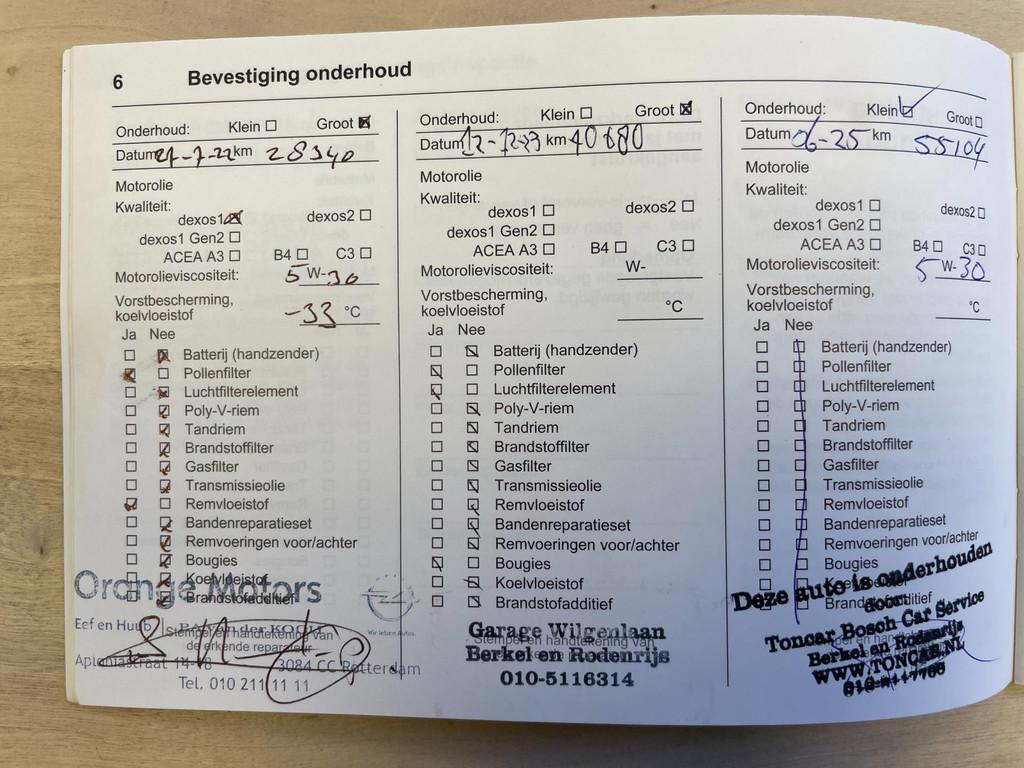 6 Bevestiging onderhoud
Onderhoud: Klein ☐ Groot ☒
Datum 21-7-22 km 28340
Motorolie
Kwaliteit:
dexos1 ☒ dexos2 ☐
dexos1 Gen2 ☐
ACEA A3 ☐ B4 ☐ C3 ☐
Motorolieviscositeit: 5 W-30
Vorstbescherming,
koelvloeistof -33 °C
Ja Nee
☐ ☒ Batterij (handzender)
☒ ☐ Pollenfilter
☐ ☒ Luchtfilterelement
☐ ☒ Poly-V-riem
☐ ☒ Tandriem
☐ ☒ Brandstoffilter
☐ ☒ Gasfilter
☐ ☒ Transmissieolie
☒ ☐ Remvloeistof
☐ ☒ Bandenreparatieset
☐ ☒ Remvoeringen voor/achter
☐ ☒ Bougies
☐ ☒ Koelvloeistof
☐ ☒ Brandstofadditief
Orange Motors
Wir leben Autos.
Eef en Huub van der
Stempel en handtekening van
de erkende reparateur
3084 CC Rotterdam
Tel. 010 211 11 11
Onderhoud: Klein ☐ Groot ☒
Datum 12-12-23 km 40680
Motorolie
Kwaliteit:
dexos1 ☐ dexos2 ☐
dexos1 Gen2 ☐
ACEA A3 ☐ B4 ☐ C3 ☐
Motorolieviscositeit: W-
Vorstbescherming,
koelvloeistof °C
Ja Nee
☐ ☒ Batterij (handzender)
☒ ☐ Pollenfilter
☒ ☐ Luchtfilterelement
☐ ☒ Poly-V-riem
☐ ☒ Tandriem
☐ ☒ Brandstoffilter
☐ ☒ Gasfilter
☐ ☒ Transmissieolie
☐ ☒ Remvloeistof
☐ ☒ Bandenreparatieset
☐ ☒ Remvoeringen voor/achter
☒ ☐ Bougies
☐ ☒ Koelvloeistof
☐ ☒ Brandstofadditief
Garage Wilgenlaan
Stempel en handtekening van
Berkel en Rodenrijs
010-5116314
Onderhoud: Klein ☑ Groot ☐
Datum 06-25 km 55104
Motorolie
Kwaliteit:
dexos1 ☐ dexos2 ☐
dexos1 Gen2 ☐
ACEA A3 ☐ B4 ☐ C3 ☐
Motorolieviscositeit: 5 W-30
Vorstbescherming,
koelvloeistof °C
Ja Nee
☐ ☐ Batterij (handzender)
☐ ☐ Pollenfilter
☐ ☐ Luchtfilterelement
☐ ☐ Poly-V-riem
☐ ☐ Tandriem
☐ ☐ Brandstoffilter
☐ ☐ Gasfilter
☐ ☐ Transmissieolie
☐ ☐ Remvloeistof
☐ ☐ Bandenreparatieset
☐ ☐ Remvoeringen voor/achter
☐ ☐ Bougies
☐ ☐ Koelvloeistof
☐ ☐ Brandstofadditief
Deze auto is onderhouden
door:
Toncar Bosch Car Service
Berkel en Rodenrijs
WWW.TONCAR.NL